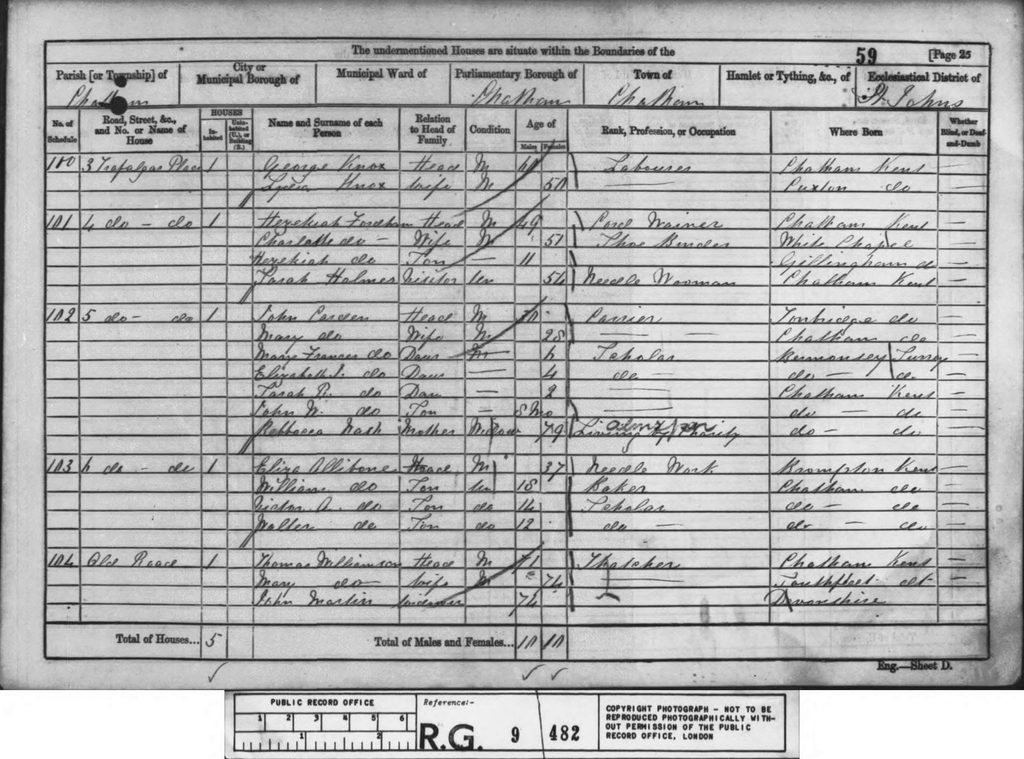 The undermentioned Houses are situate within the Boundaries of the
59
[Page 25
Parish [or Township] of
City or Municipal Borough of
Municipal Ward of
Parliamentary Borough of
Town of
Hamlet or Tything, &c., of
Ecclesiastical District of
Chatham Chatham Chatham St. Johns
No. of Schedule
Road, Street, &c., and No. or Name of House
HOUSES
Inhabited
Uninhabited (U.), or Building (B.)
Name and Surname of each Person
Relation to Head of Family
Condition
Age of
Males
Females
Rank, Profession, or Occupation
Where Born
Whether Blind, or Deaf-and-Dumb
100 3 Trafalgar Place 1 George Knox Head M Labourer Chatham Kent —
Lydia Knox Wife M 50 — Cuxton do —
101 4 do - do 1 Hezekiah Fordham Head M 49 Cord Wainer Chatham Kent —
Charlotte do - Wife M 51 Shoe Binder White Chapel —
Hezekiah do Son — 11 Gillingham do —
Sarah Holmes Visitor Un 54 Needle Wooman Chatham Kent —
102 5 do - do 1 John Carden Head M Carrier Tonbridge do —
Mary do Wife M 28 — — Chatham do —
Mary Frances do Daur 6 Scholar Bermonsey Surrey —
Elizabeth J. do Daur — 4 do — do — do —
Sarah R. do Dau — 2 — Chatham Kent —
John W. do Son — 8 Mo — do — do —
Rebbecca Nash Mother Widow 79 Living by Charity do - do —
103 6 do - do 1 Eliza Allibone Head M 37 Needle Work Brompton Kent —
William do Son Un 18 Baker Chatham do —
Victor A. do Son do 14 Scholar do - do —
Walter do Son do 12 do — do — do —
104 Old Road 1 Thomas Williamson Head M 71 Thatcher Chatham Kent —
Mary do - Wife M 74 — Southfleet do —
John Martin 74 Devonshire
Total of Houses... 5
Total of Males and Females... 10 10
Eng.—Sheet D.
PUBLIC RECORD OFFICE
1 2 3 4 5 6
1 2
Reference:-
R.G. 9 482
COPYRIGHT PHOTOGRAPH - NOT TO BE
REPRODUCED PHOTOGRAPHICALLY WITH-
OUT PERMISSION OF THE PUBLIC
RECORD OFFICE, LONDON